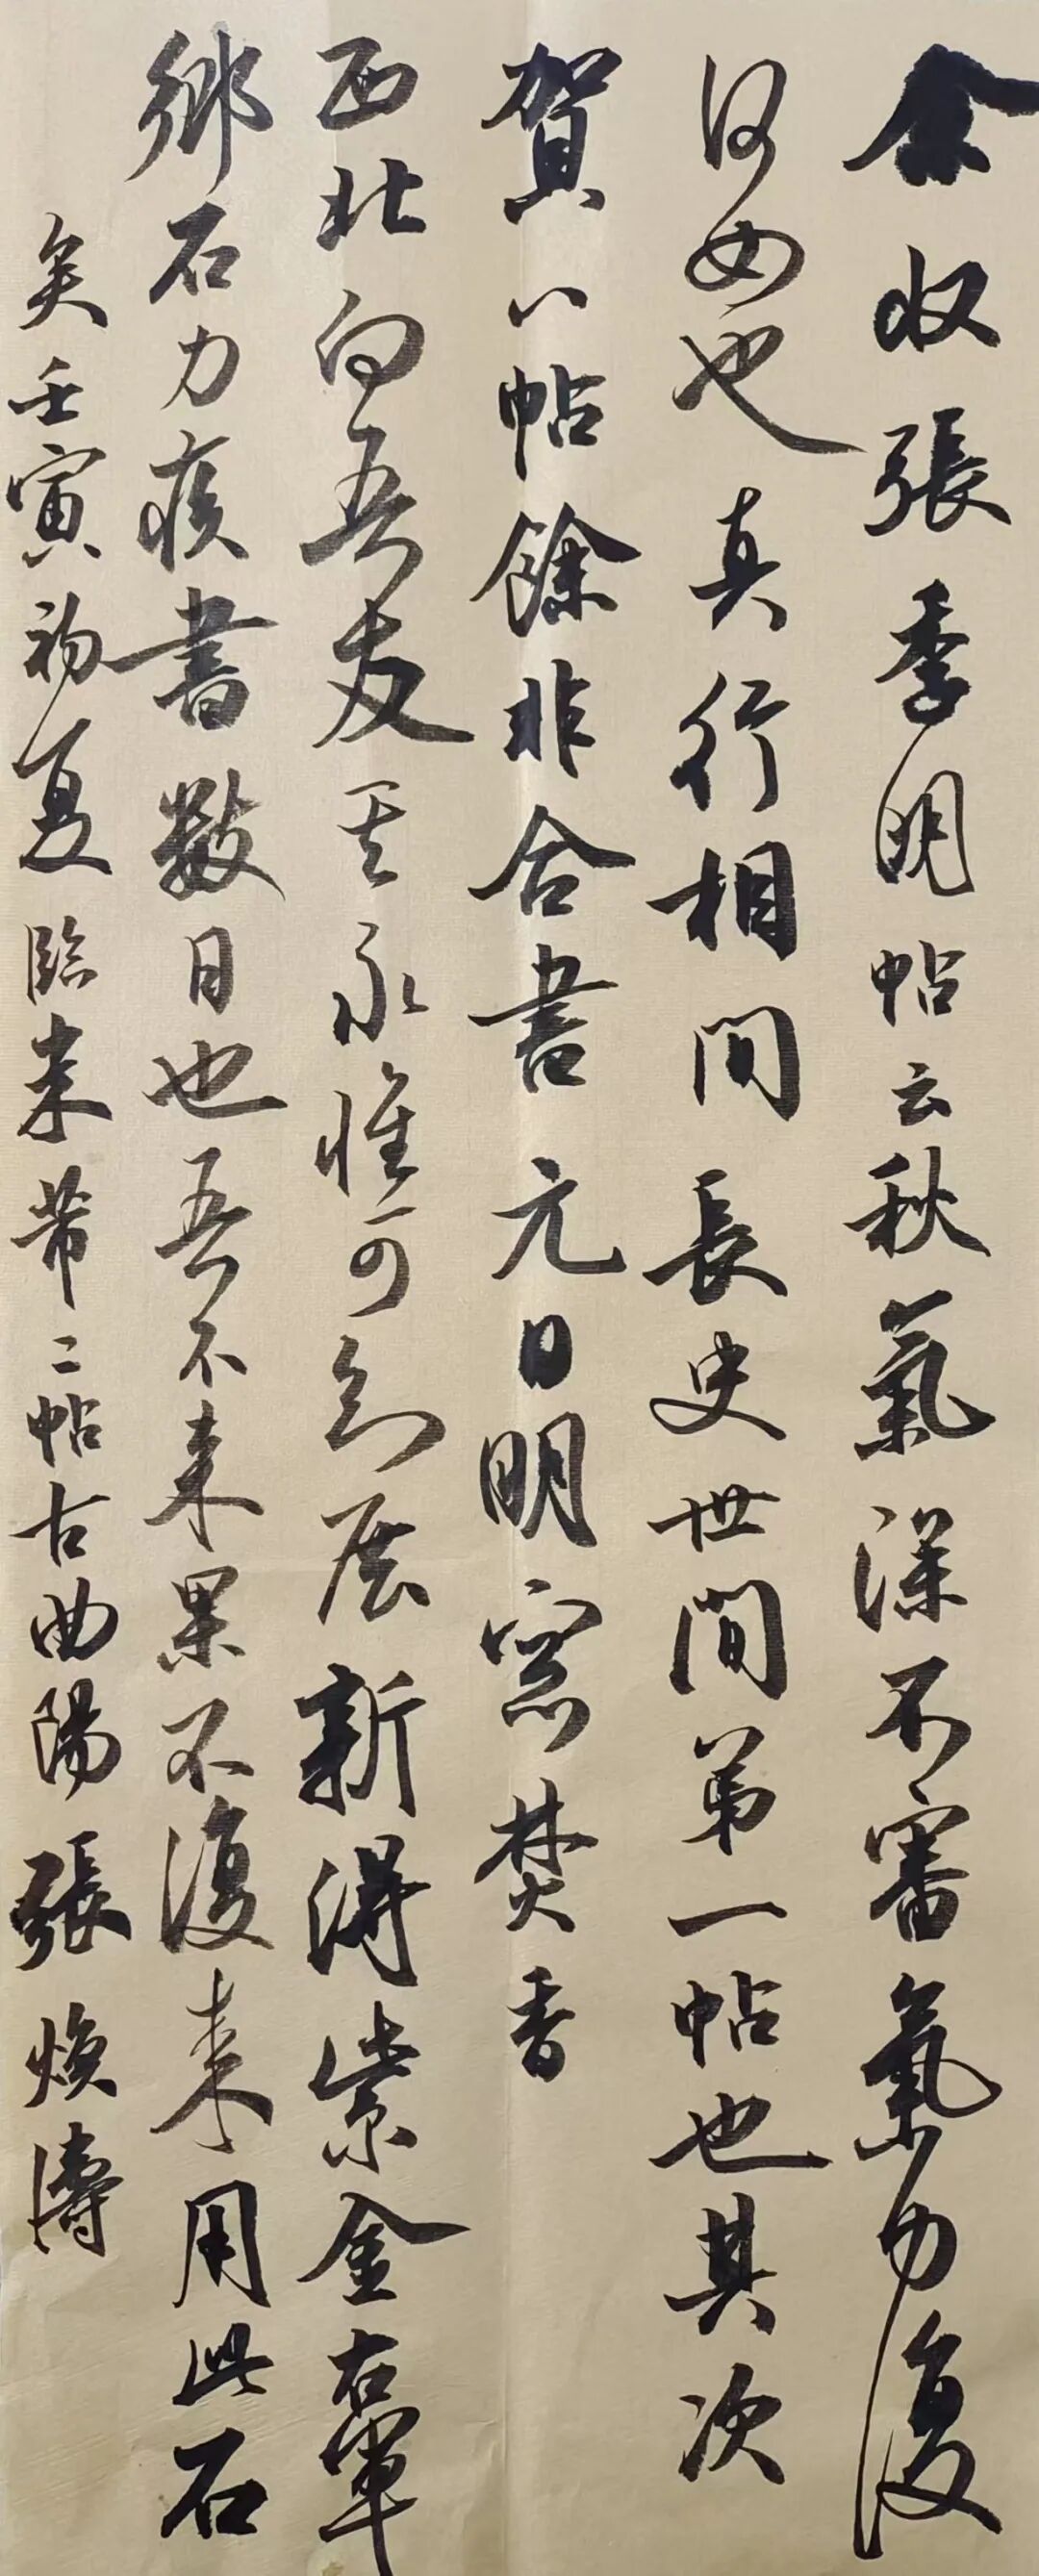 余收張季明帖云秋氣深不審氣力復
何如也真行相間長史世間第一帖也其次
賀八帖餘非合書元日明窓焚香
西北向吾友其永懷可知展新得紫金右軍
鄉石力疾書數日也吾不來果不復来用此石
矣壬寅初夏臨米芾二帖古曲陽張煥濤